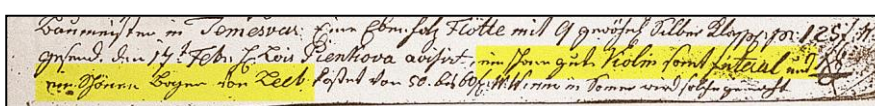 Baumeister in Temesvar. Eine Ebenholz Flötte mit 9 gewöhl Silber Klapp: pr: 125 f.
gesend. den 17t Feb: H: Lois Pienkova avisirt, ein schon gute Violin samt futeral und
ein schönen Bogen von Leeb kostet von 50. bis 60 f: in Somer wird solche gemacht